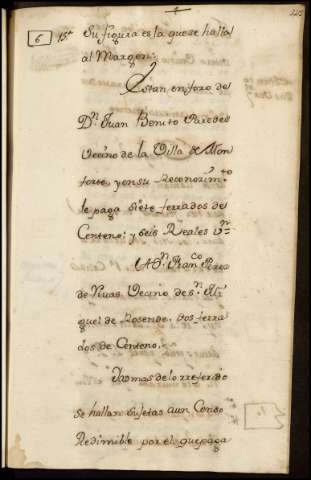 6 15ª Su figura es la que se halla
al Margen:
Estan en foro de
Dn. Juan Benito Paredes
Vecino de la Villa de Mon
forte, y en su Reconozim.to
le paga siete ferrados de
Centeno: y seis Reales vn.
A Dn. Fran.co Perez
de Vivas Vecino de Sn. Mi
guel de Rosende. dos ferra
dos de Centeno.
Y demas de lo rreferido
se hallan sujetas a un Censo
Redimible por el que paga